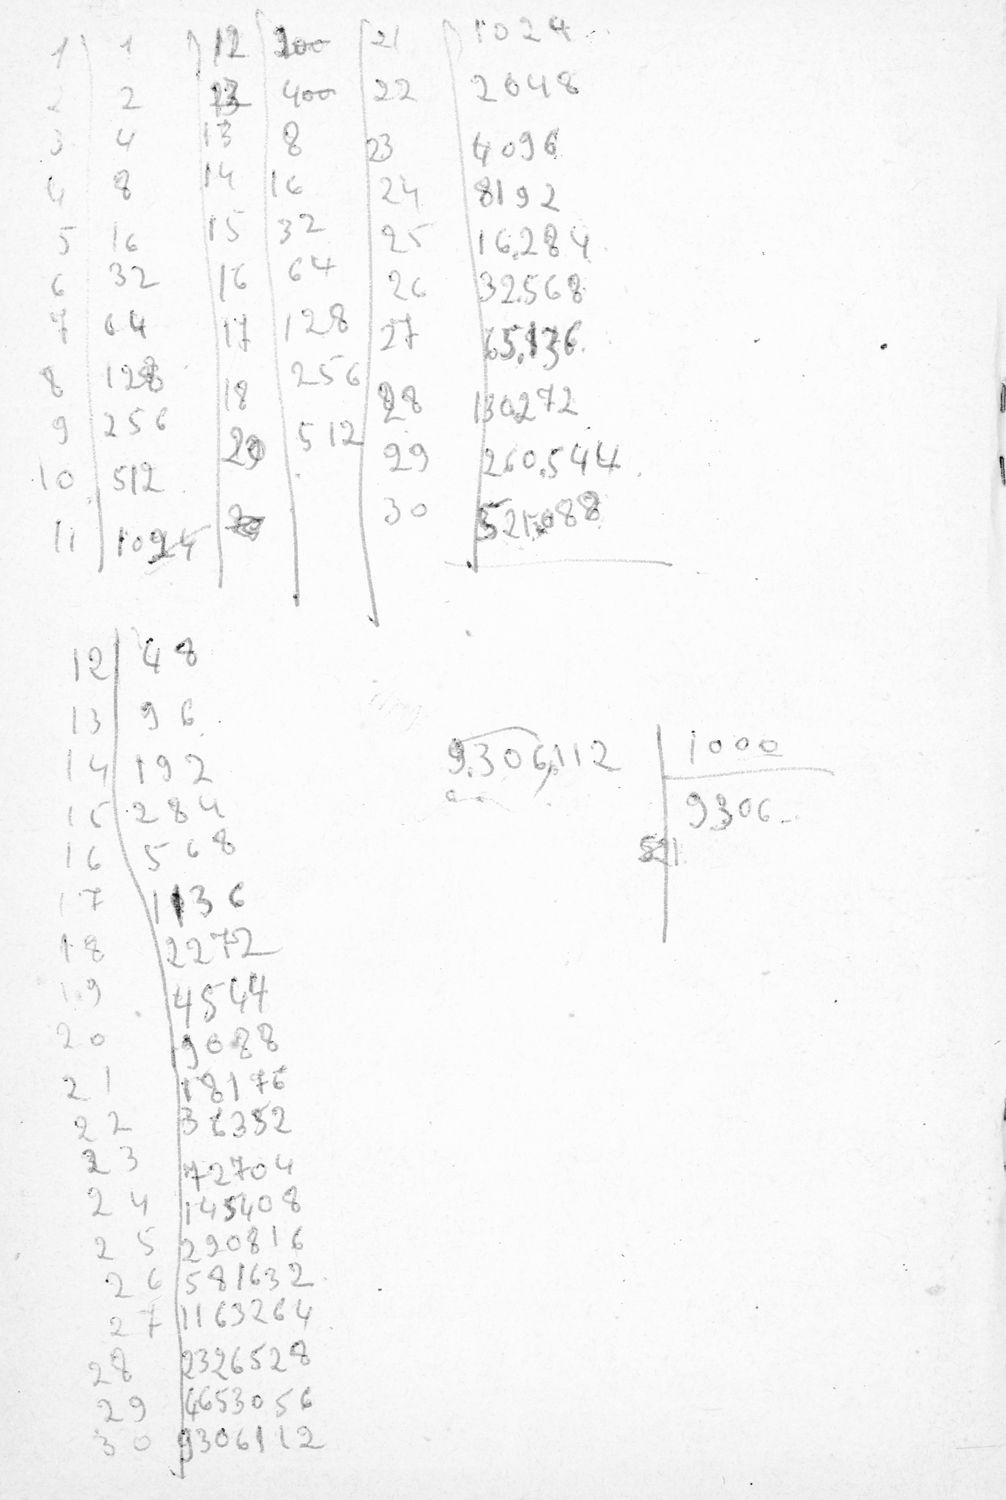 1 1 12 200 21 1024
2 2 13 400 22 2048
3 4 13 8 23 4096
4 8 14 16 24 8192
5 16 15 32 25 16,284
6 32 16 64 26 32,568
7 64 17 128 27 65,136
8 128 18 256 28 130,272
9 256 512 29 260,544
10 512 30 521,088
11
12 48
13 96
14 192 9,306,112 1000
15 284 9306
16 568 521
17 1136
18 2272
19 4544
20 9088
21 18176
22 36352
23 72704
24 145408
25 290816
26 581632
27 1163264
28 2326528
29 4653056
30 9306112